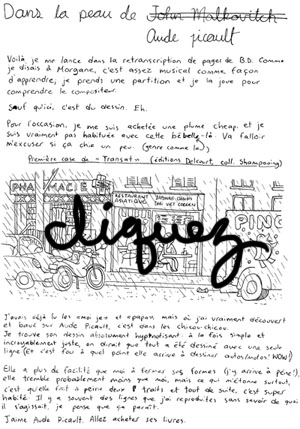 Dans la peau de John Malkovitch
Aude picault
Voilà je me lance dans la retranscription de pages de B.D. Comme
je disais à Morgane, c'est assez musical comme façon
d'apprendre, je prends une partition et je la joue pour
comprendre le compositeur.
Sauf qu'ici, c'est du dessin. Eh.
Pour l'occasion, je me suis achetée une plume cheap et je
suis vraiment pas habituée avec cette bébelle-là. Va falloir
m'excuser si ça chie un peu. (genre comme là)
Première case de "Transat" (éditions Delcourt, coll. Shampooing)
PHARMACIE
RESTAURANT
ASIATIQUE
PING
cliquez
J'avais déjà lu les amoi jeu et apapan mais où j'ai vraiment découvert
et bavé sur Aude Picault, c'est dans les chicou-chicou.
Je trouve son dessin absolument hypnotisant à la fois simple et
incroyablement juste, on dirait que tout a été dessiné avec une seule
ligne (Et c'est fou à quel point elle arrive à dessiner autos/motos! WOW!)
Elle a plus de facilité que moi à fermer ses formes (j'y arrive à peine!),
elle tremble probablement moins que moi, mais ce qui m'étonne surtout,
c'est qu'elle fait à peine deux traits et tout de suite, c'est super
habité. Il y a souvent des lignes que j'ai reproduites sans savoir de quoi
il s'agissait, je pense que ça paraît.
J'aime Aude Picault. Allez acheter ses livres.